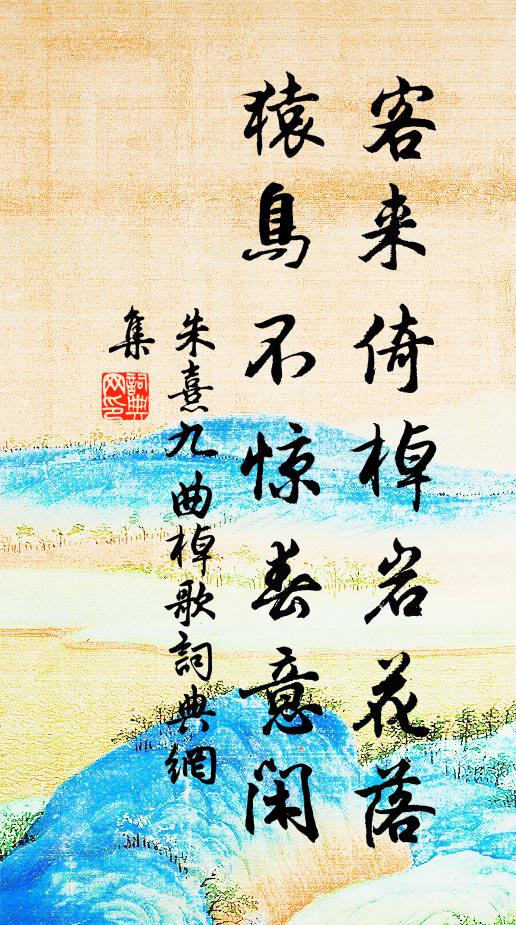 客来倚棹岩花落
猿鳥不惊春意闲
朱熹九曲棹歌詞典網
集
詞典
网印